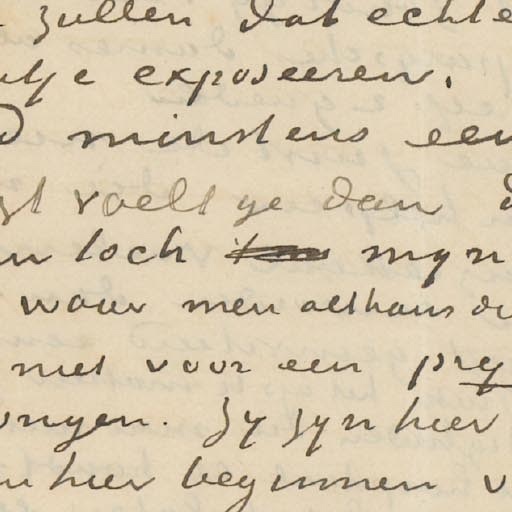 zullen dat echte
exposeeren.
minstens een
voelt ge dan d
toch myn
waar men althans du
niet voor een pry
ongen. Zy zyn hier
hier beginnen v